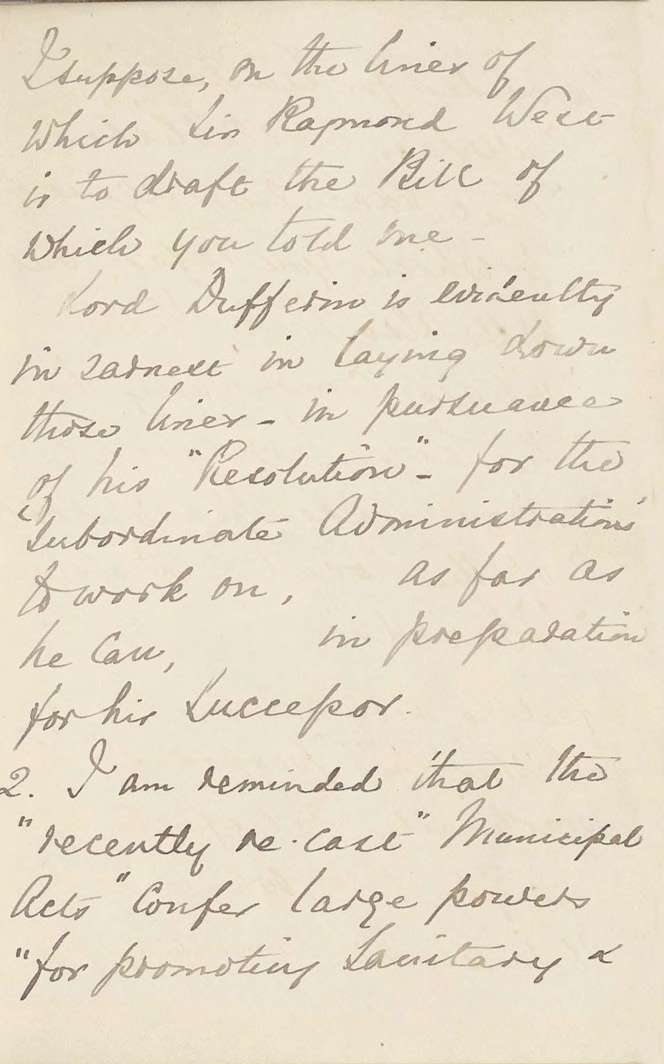 I suppose, on the lines of
which Sir Raymond West
is to draft the Bill of
which you told me -
Lord Dufferin is evidently
in earnest in laying down
those lines - in pursuance
of his "Resolution" - for the
subordinate Administrations
to work on, as far as
he can, in preparation
for his Successor.
2. I am reminded that the
"recently re-cast" Municipal
Acts "confer large powers
"for promoting Sanitary &